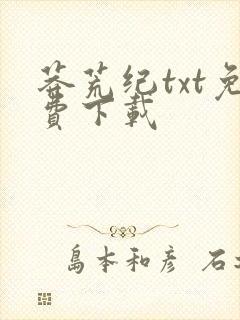 莽荒纪txt免
費下載
島本和彦 石